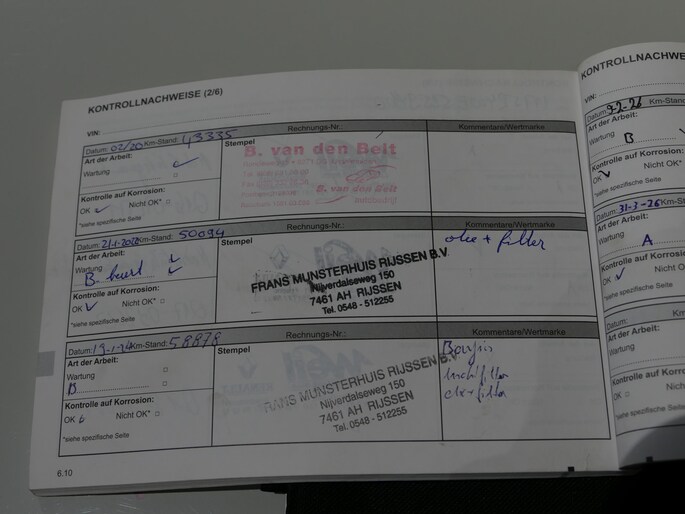 KONTROLLNACHWEISE (2/6)
VIN:
Datum: 02/20 Km-Stand: 43335
Rechnungs-Nr.:
Kommentare/Wertmarke
Art der Arbeit:
Wartung
Stempel
B. van den Belt
B. van den Belt
Kontrolle auf Korrosion:
OK Nicht OK*
*siehe spezifische Seite
Datum: 21-1-2022 Km-Stand: 50094
Rechnungs-Nr.:
Kommentare/Wertmarke
Art der Arbeit:
Wartung
B. beurt
Stempel
olie + filter
FRANS MUNSTERHUIS RIJSSEN B.V.
Nijverdalseweg 150
7461 AH RIJSSEN
Tel. 0548 - 512255
Kontrolle auf Korrosion:
OK Nicht OK*
*siehe spezifische Seite
Datum: 19-1-24 Km-Stand: 58878
Rechnungs-Nr.:
Kommentare/Wertmarke
Art der Arbeit:
Wartung
B
Stempel
Bougies
luchtfilter
olie + filter
FRANS MUNSTERHUIS RIJSSEN B.V.
Nijverdalseweg 150
7461 AH RIJSSEN
Tel. 0548 - 512255
Kontrolle auf Korrosion:
OK Nicht OK*
*siehe spezifische Seite
6.10
KONTROLLNACHWEISE
VIN:
Datum: 9-2-26 Km-Stand
Art der Arbeit:
Wartung
B
Kontrolle auf Korrosion:
OK Nicht OK*
*siehe spezifische Seite
Datum: 31-3-26 Km-Stand
Art der Arbeit:
Wartung
A
Kontrolle auf Korrosion:
OK Nicht OK*
*siehe spezifische Seite
Datum: Km-Stand
Art der Arbeit:
Wartung
Kontrolle auf Korrosion:
OK Nicht OK*
*siehe spezifische Seite